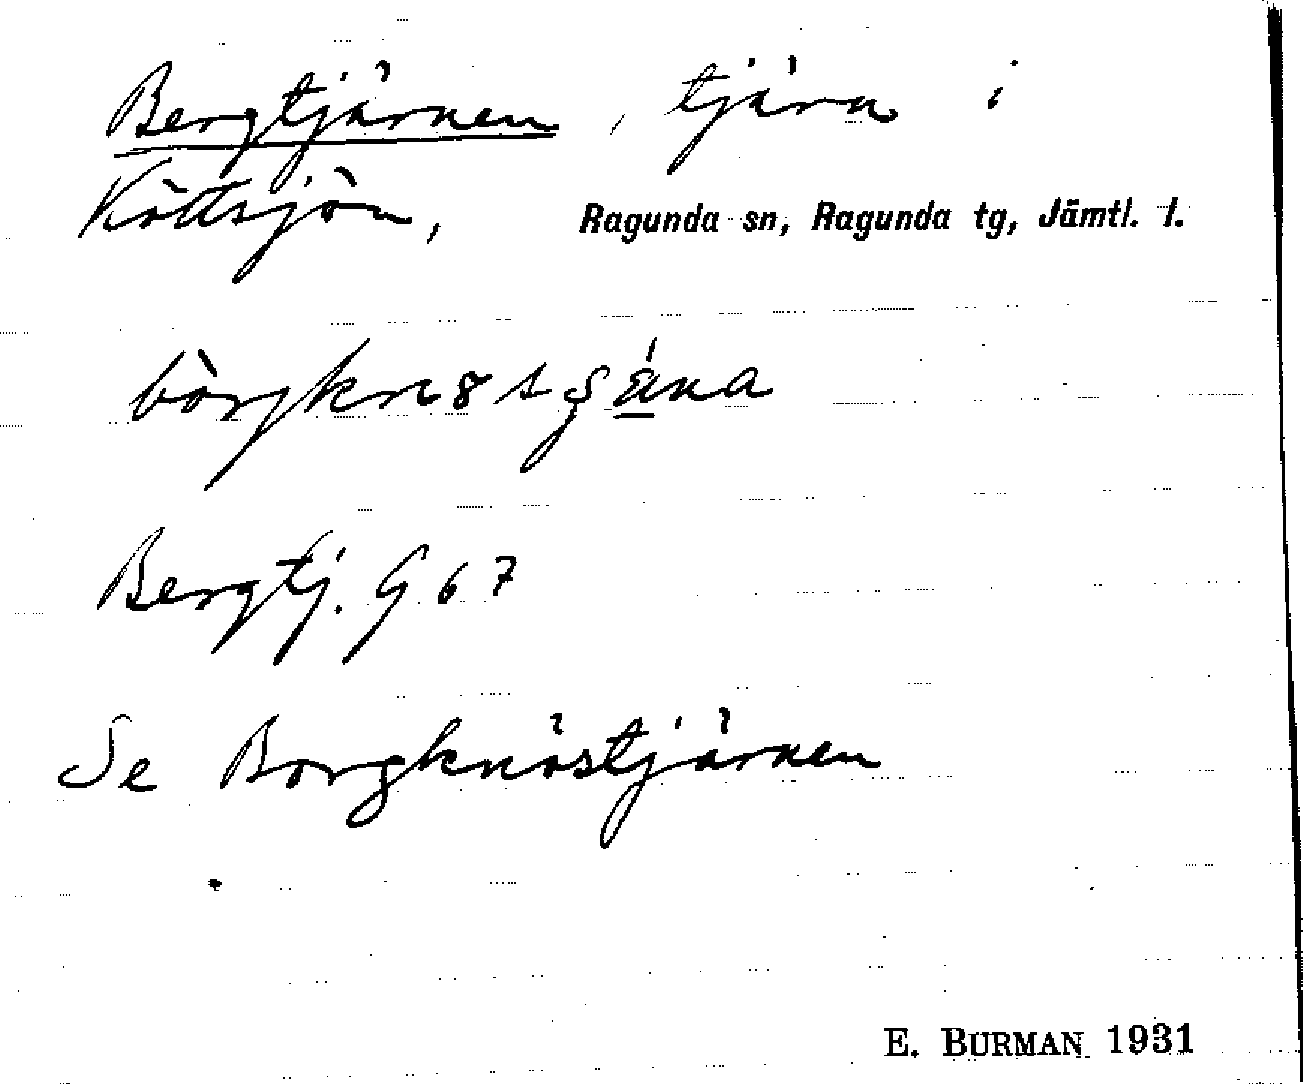 Bergtjärnen, tjärn i
Köttsjön, Ragunda sn, Ragunda tg, Jämtl. l.
Bergtj. G 67
Se Borgknöstjärnen
E. BURMAN 1931